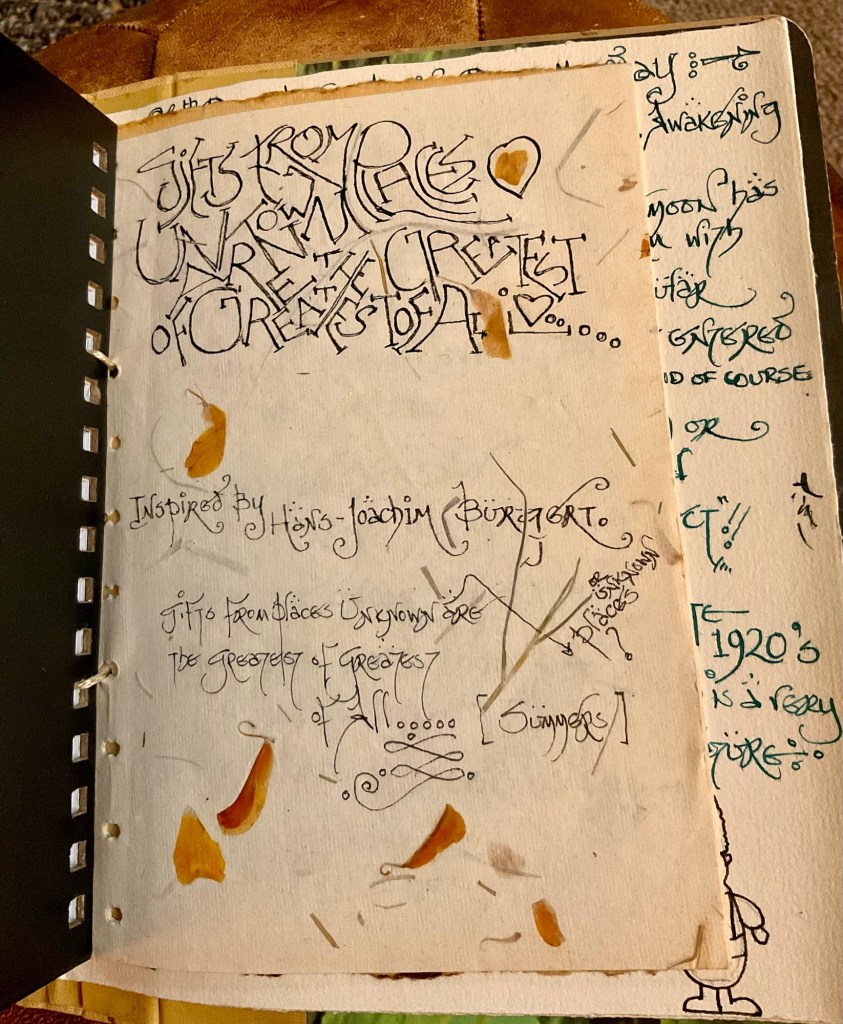 GIFTS FROM PLACES
UNKNOWN ARE THE GREATEST
OF GREATEST OF ALL.....
Inspired By Häns-Joächim Bürgert.
gifts from pläces Ünknown äre
the greatest of greatest
of All..... [Sümmers]
or
unknown
pläces
?
ay :→
Awakening
moon häs
with
üfär
entered
D OF COURSE
OR
CT"!!
1920's
is ä very
türe